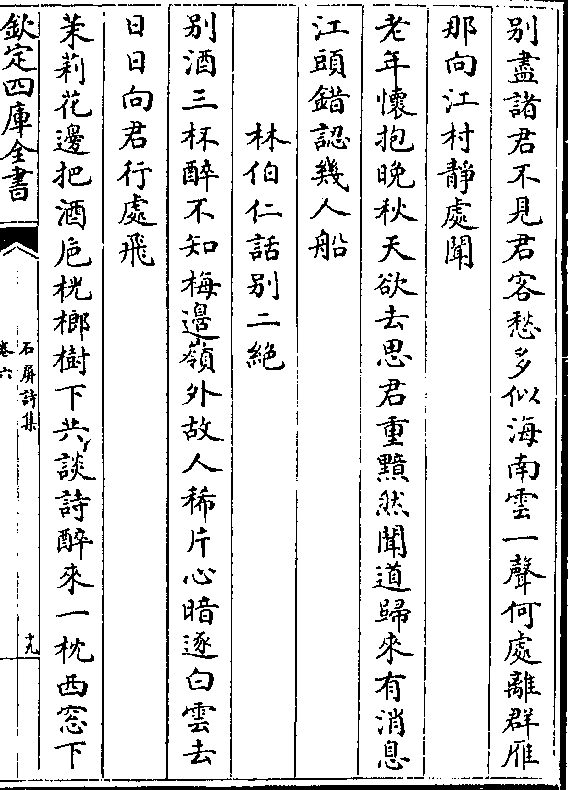 別盡諸君不見君客愁多似海南雲一聲何處離群雁
那向江村靜處聞
老年懷抱晚秋天欲去思君重黯然聞道歸來有消息
江頭錯認幾人船
林伯仁話別二絶
別酒三杯醉不知梅邊嶺外故人稀片心暗逐白雲去
日日向君行處飛
茉莉花邊把酒巵桄榔樹下共談詩醉來一枕西窓下
欽定四庫全書
石屏詩集
卷六
十九